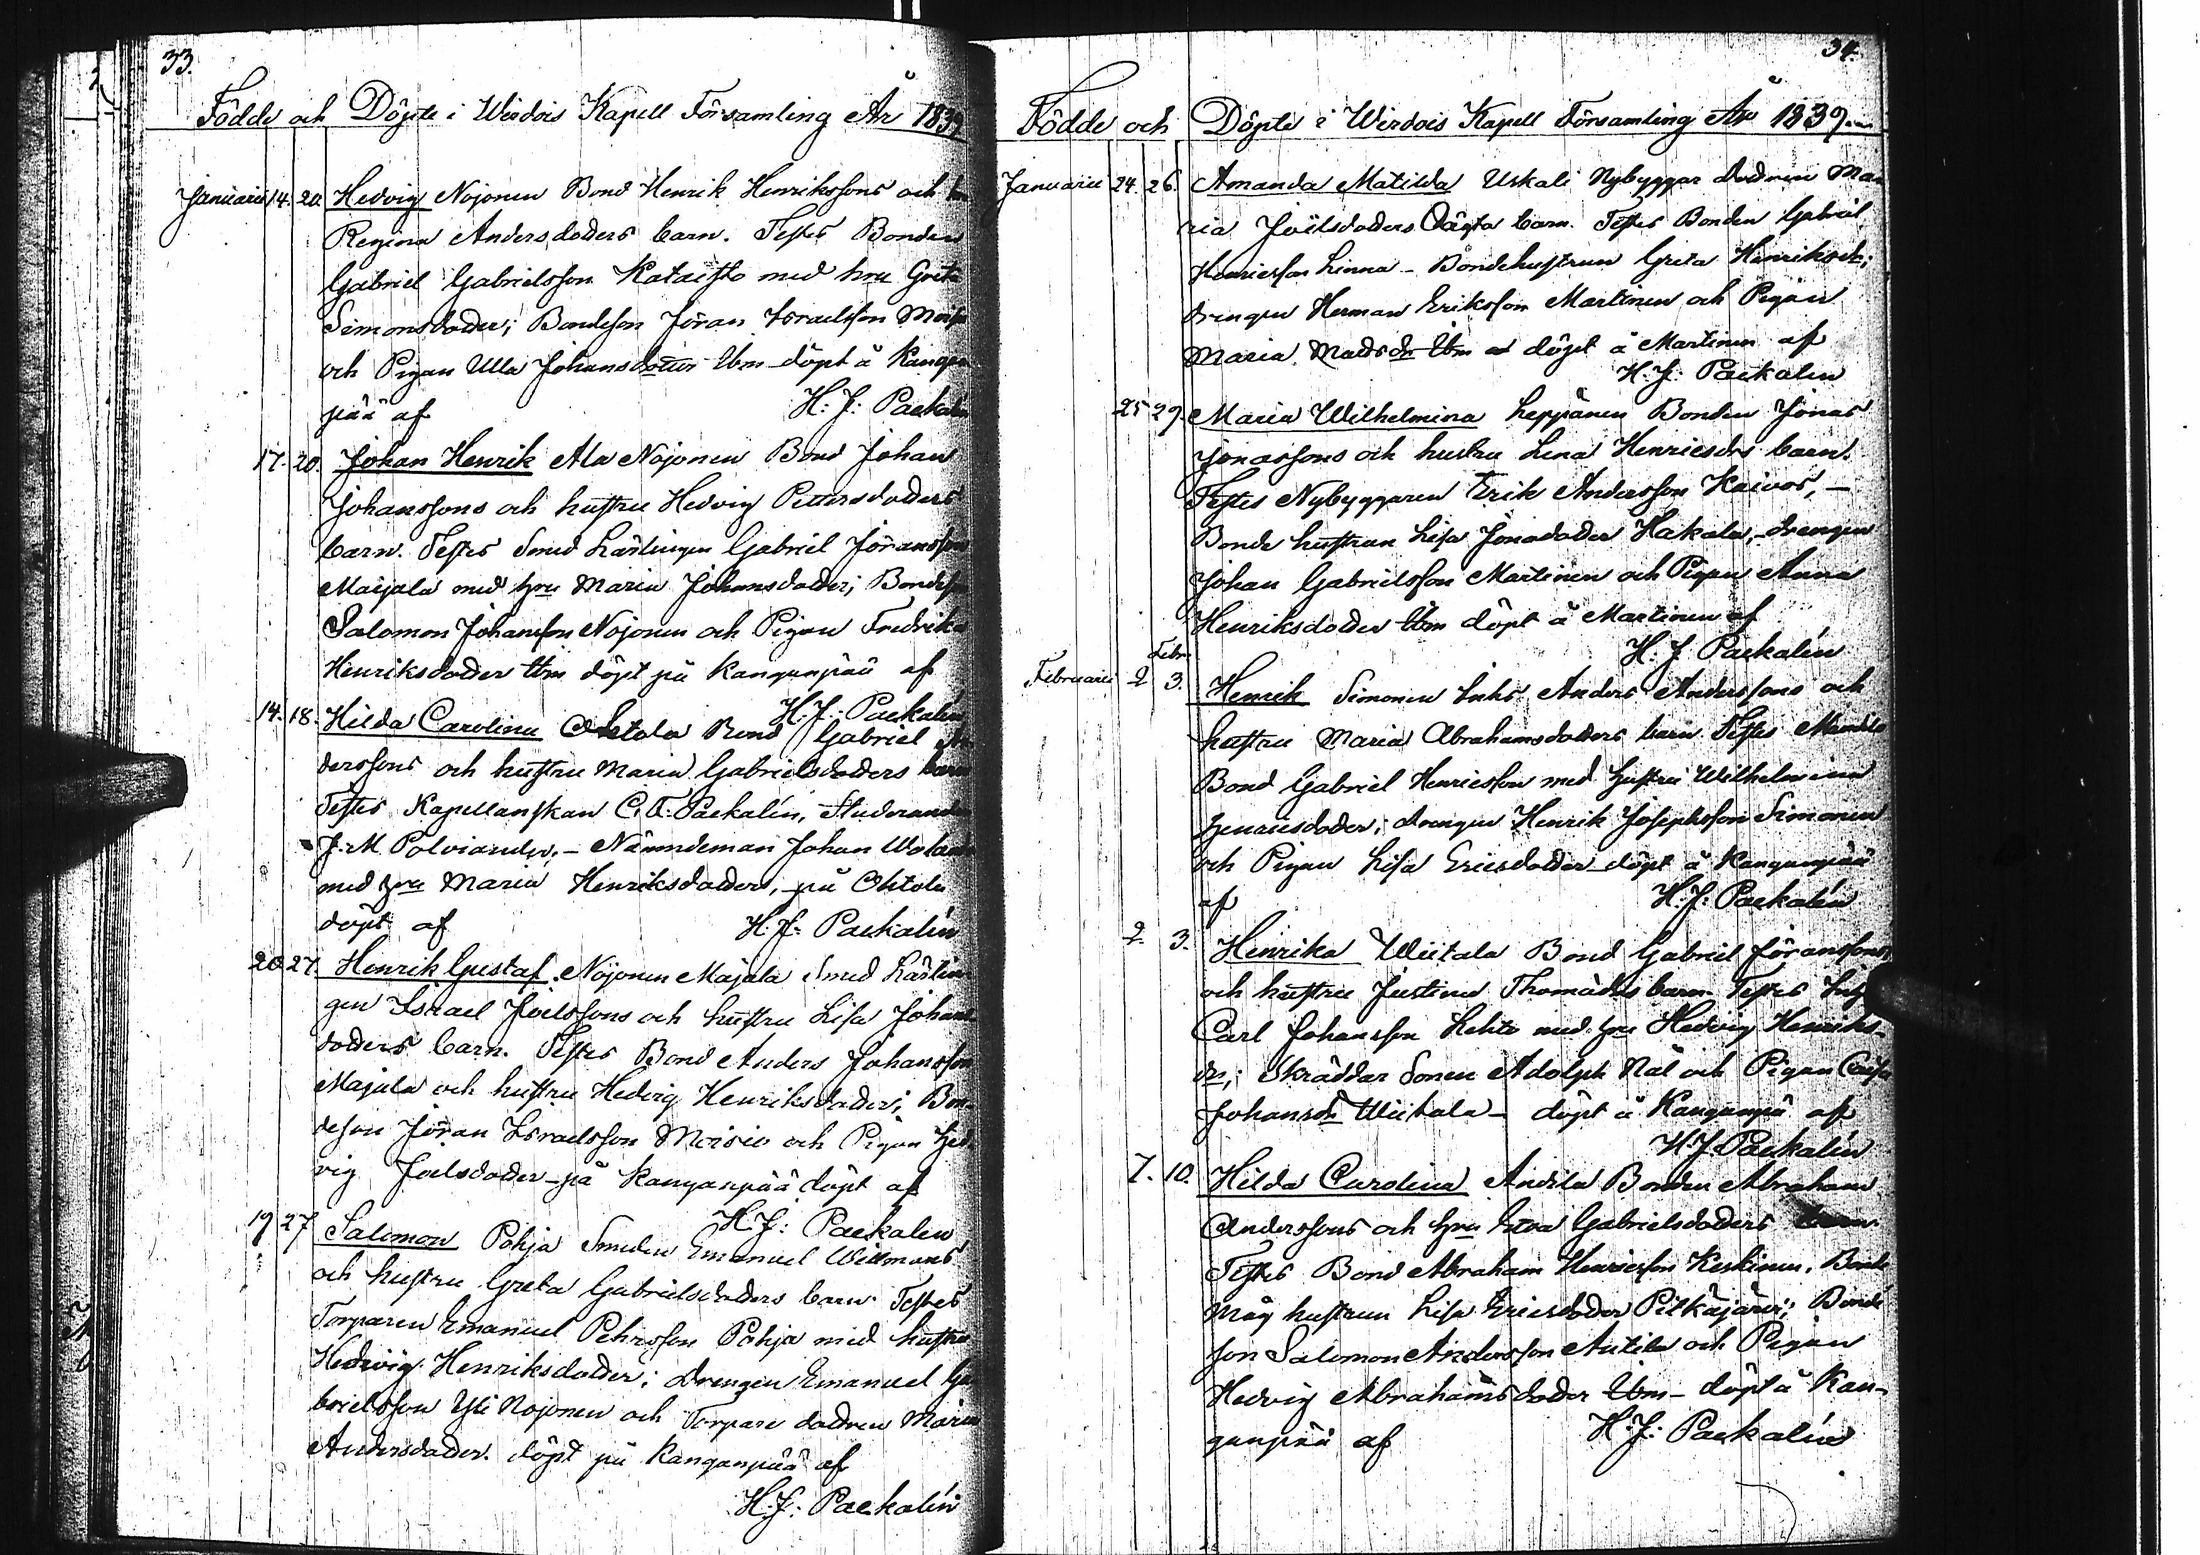 33.
Födde och Döpte i Wirdois Kapell Församling År 1839
Januarii 14. 20. Hedvig Nojonen Bond Henrik Henrikssons och
Regina Andersdotters barn. Testes Bonden
Gabriel Gabrielsson Kataisto med hru Greta
Simonsdotter; Bondeson Jöran Israelsson
och Pigan Ulla Johansdotter Ibm döpt å Kangan
pää af H: J: Paekalén
17. 20. Johan Henrik Ala Nojonen Bond Johan
Johanssons och hustru Hedvig Pettersdotters
barn. Testes Smed Lärlingen Gabriel Jöransson
Maijala med hru Maria Johansdotter; Bondeson
Salomon Johansson Nojonen och Pigan Fredrika
Henriksdotter Ibm döpt på Kanganpää af
H. J: Paekalén
14. 18. Hilda Carolina Ohtola Bond Gabriel An
derssons och hustru Maria Gabrielsdotters barn
Testes Kapellanskan C. Paekalén, Studeranden
J. M. Polviander, – Nämndeman Johan
med hru Maria Henriksdotter, på Ohtola
döpt af H. J: Paekalén
20 27. Henrik Gustaf Nojonen Majala Smed Lärlin
gen Israel Joelssons och hustru Lisa Johans
dotters barn. Testes Bond Anders Johansson
Majala och hustru Hedvig Henriksdotter; Bon
deson Jöran Israelsson Moisio och Pigan Hed
vig Joelsdotter på Kanganpää döpt af
H. J: Paekalén
19 27 Salomon Pohja Smeden Emanuel Willmans
och hustru Greta Gabrielsdotters barn Testes
Torparen Emanuel Pehrsson Pohja med hustru
Hedvig Henriksdotter; Drengen Emanuel Ga
brielsson Yli Nojonen och Torpare dottren Maria
Andersdotter. döpt på Kanganpää af
H. J: Paekalén
34.
Födde och Döpte i Wirdois Kapell Församling År 1839.
Januarii 24. 26. Amanda Matilda Uskali Nybyggar dottren Ma
ria Joëlsdotters Oägta barn. Testes Bonden Gabriel
Henricsson Linna – Bondehustrun Greta Henriksdr;
drengen Herman Eriksson Martinen och Pigan
Maria Madsdr Ibm döpt å Martinen af
H: J: Paekalén
25 29. Maria Wilhelmina Leppänen Bonden Jonas
Jonassons och hustru Lena Henricsdrs barn.
Testes Nybyggaren Erik Andersson Kaivos, –
Bonde hustrun Lisa Jonadotter Hakala, – drengen
Johan Gabrielsson Martinen och Pigan Anna
Henriksdotter Ibm döpt å Martinen af
H. J Paekalén
Februarii 2 Febr. 3. Henrik Simonen Inhs Anders Anderssons och
hustru Maria Abrahamsdotters barn Testes
Bond Gabriel Henricsson med hustru Wilhelmina
Henricsdotter; drengen Henrik Josephsson Simonen
och Pigan Lisa Ericsdotter döpt å Kanganpää
af H. J: Paekalén
2. 3. Henrika Uiitala Bond Gabriel Jöranssons
och hustru Justina Thomædrs barn Testes
Carl Johansson Lehto med hru Hedvig Henriks-
dr; Skräddar Sonen Adolph Nål och Pigan Caisa
Johansdr Uiitala – döpt å Kanganpä af
H. J. Paekalén
7. 10. Hilda Carolina Antila Bonden Abraham
Anderssons och hru Eva Gabrielsdotters barn
Testes Bond Abraham Henricsson Keskinen, Bonde
måg hustrun Lisa Ericsdotter Pitkäjärvi; Bonde
son Salomon Andersson Antila och Pigan
Hedvig Abrahamsdotter Ibm – döpt å Kan-
ganpää af H: J: Paekalén